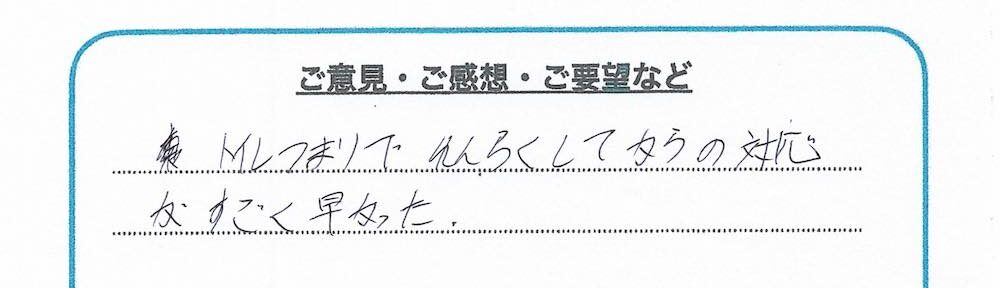 ご意見・ご感想・ご要望など
トイレつまりで れんらくしてからの対応
が すごく早かった.